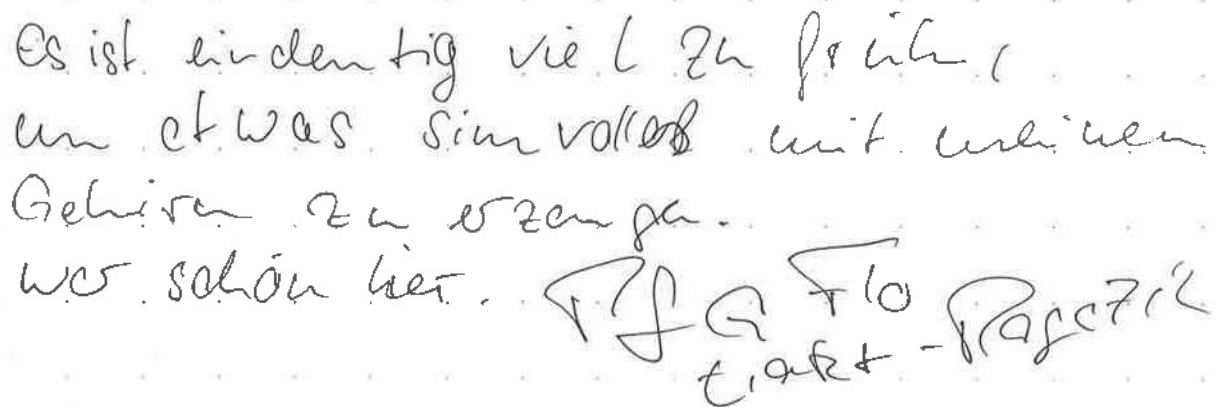 Es ist eindeutig viel zu früh,
um etwas sinnvolles mit meinen
Gehirn zu erzeugen.
war schön hier. Flo